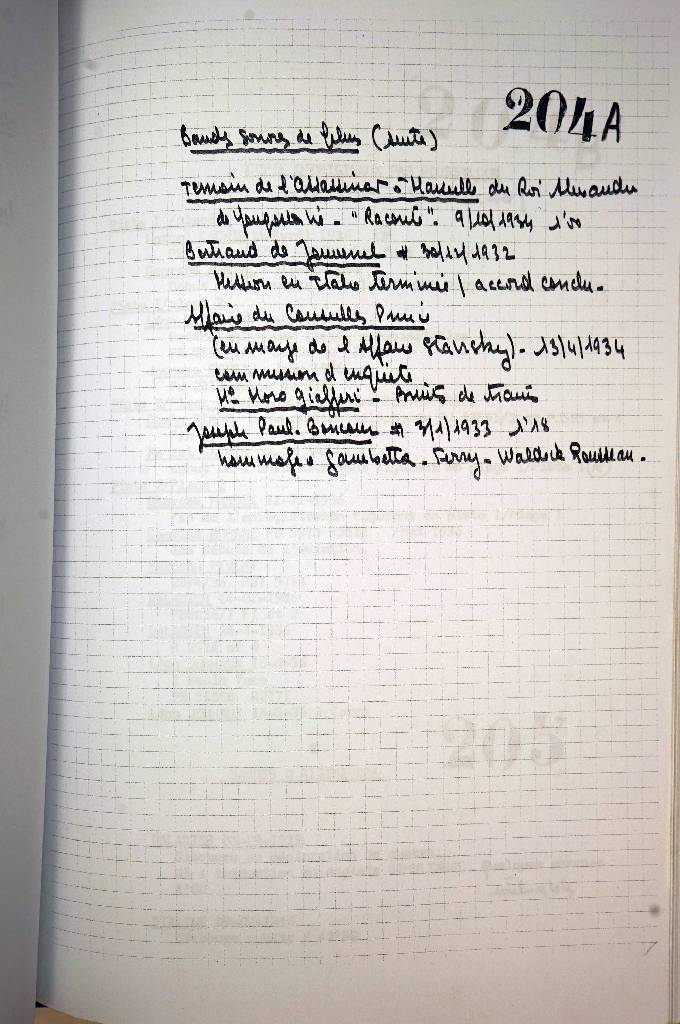 204A
Bandes sonores de films (suite)
Temoin de l'Assassinat à Marseille du Roi Alexandre
de Yougoslavie - "Raconte". 9/10/1934 1'00
Bertrand de Jouvenel # 30/12/1932
Mission en Italie terminée / accord conclu.
Affaire du Conseiller Prince
(en marge de l'Affaire Stavisky). 13/4/1934
commission d'enquête
Me Moro Giafferi - Bruits de
Joseph Paul-Boncour # 3/1/1933 1'18
hommage à Gambetta - Ferry - Waldeck Rousseau.
205